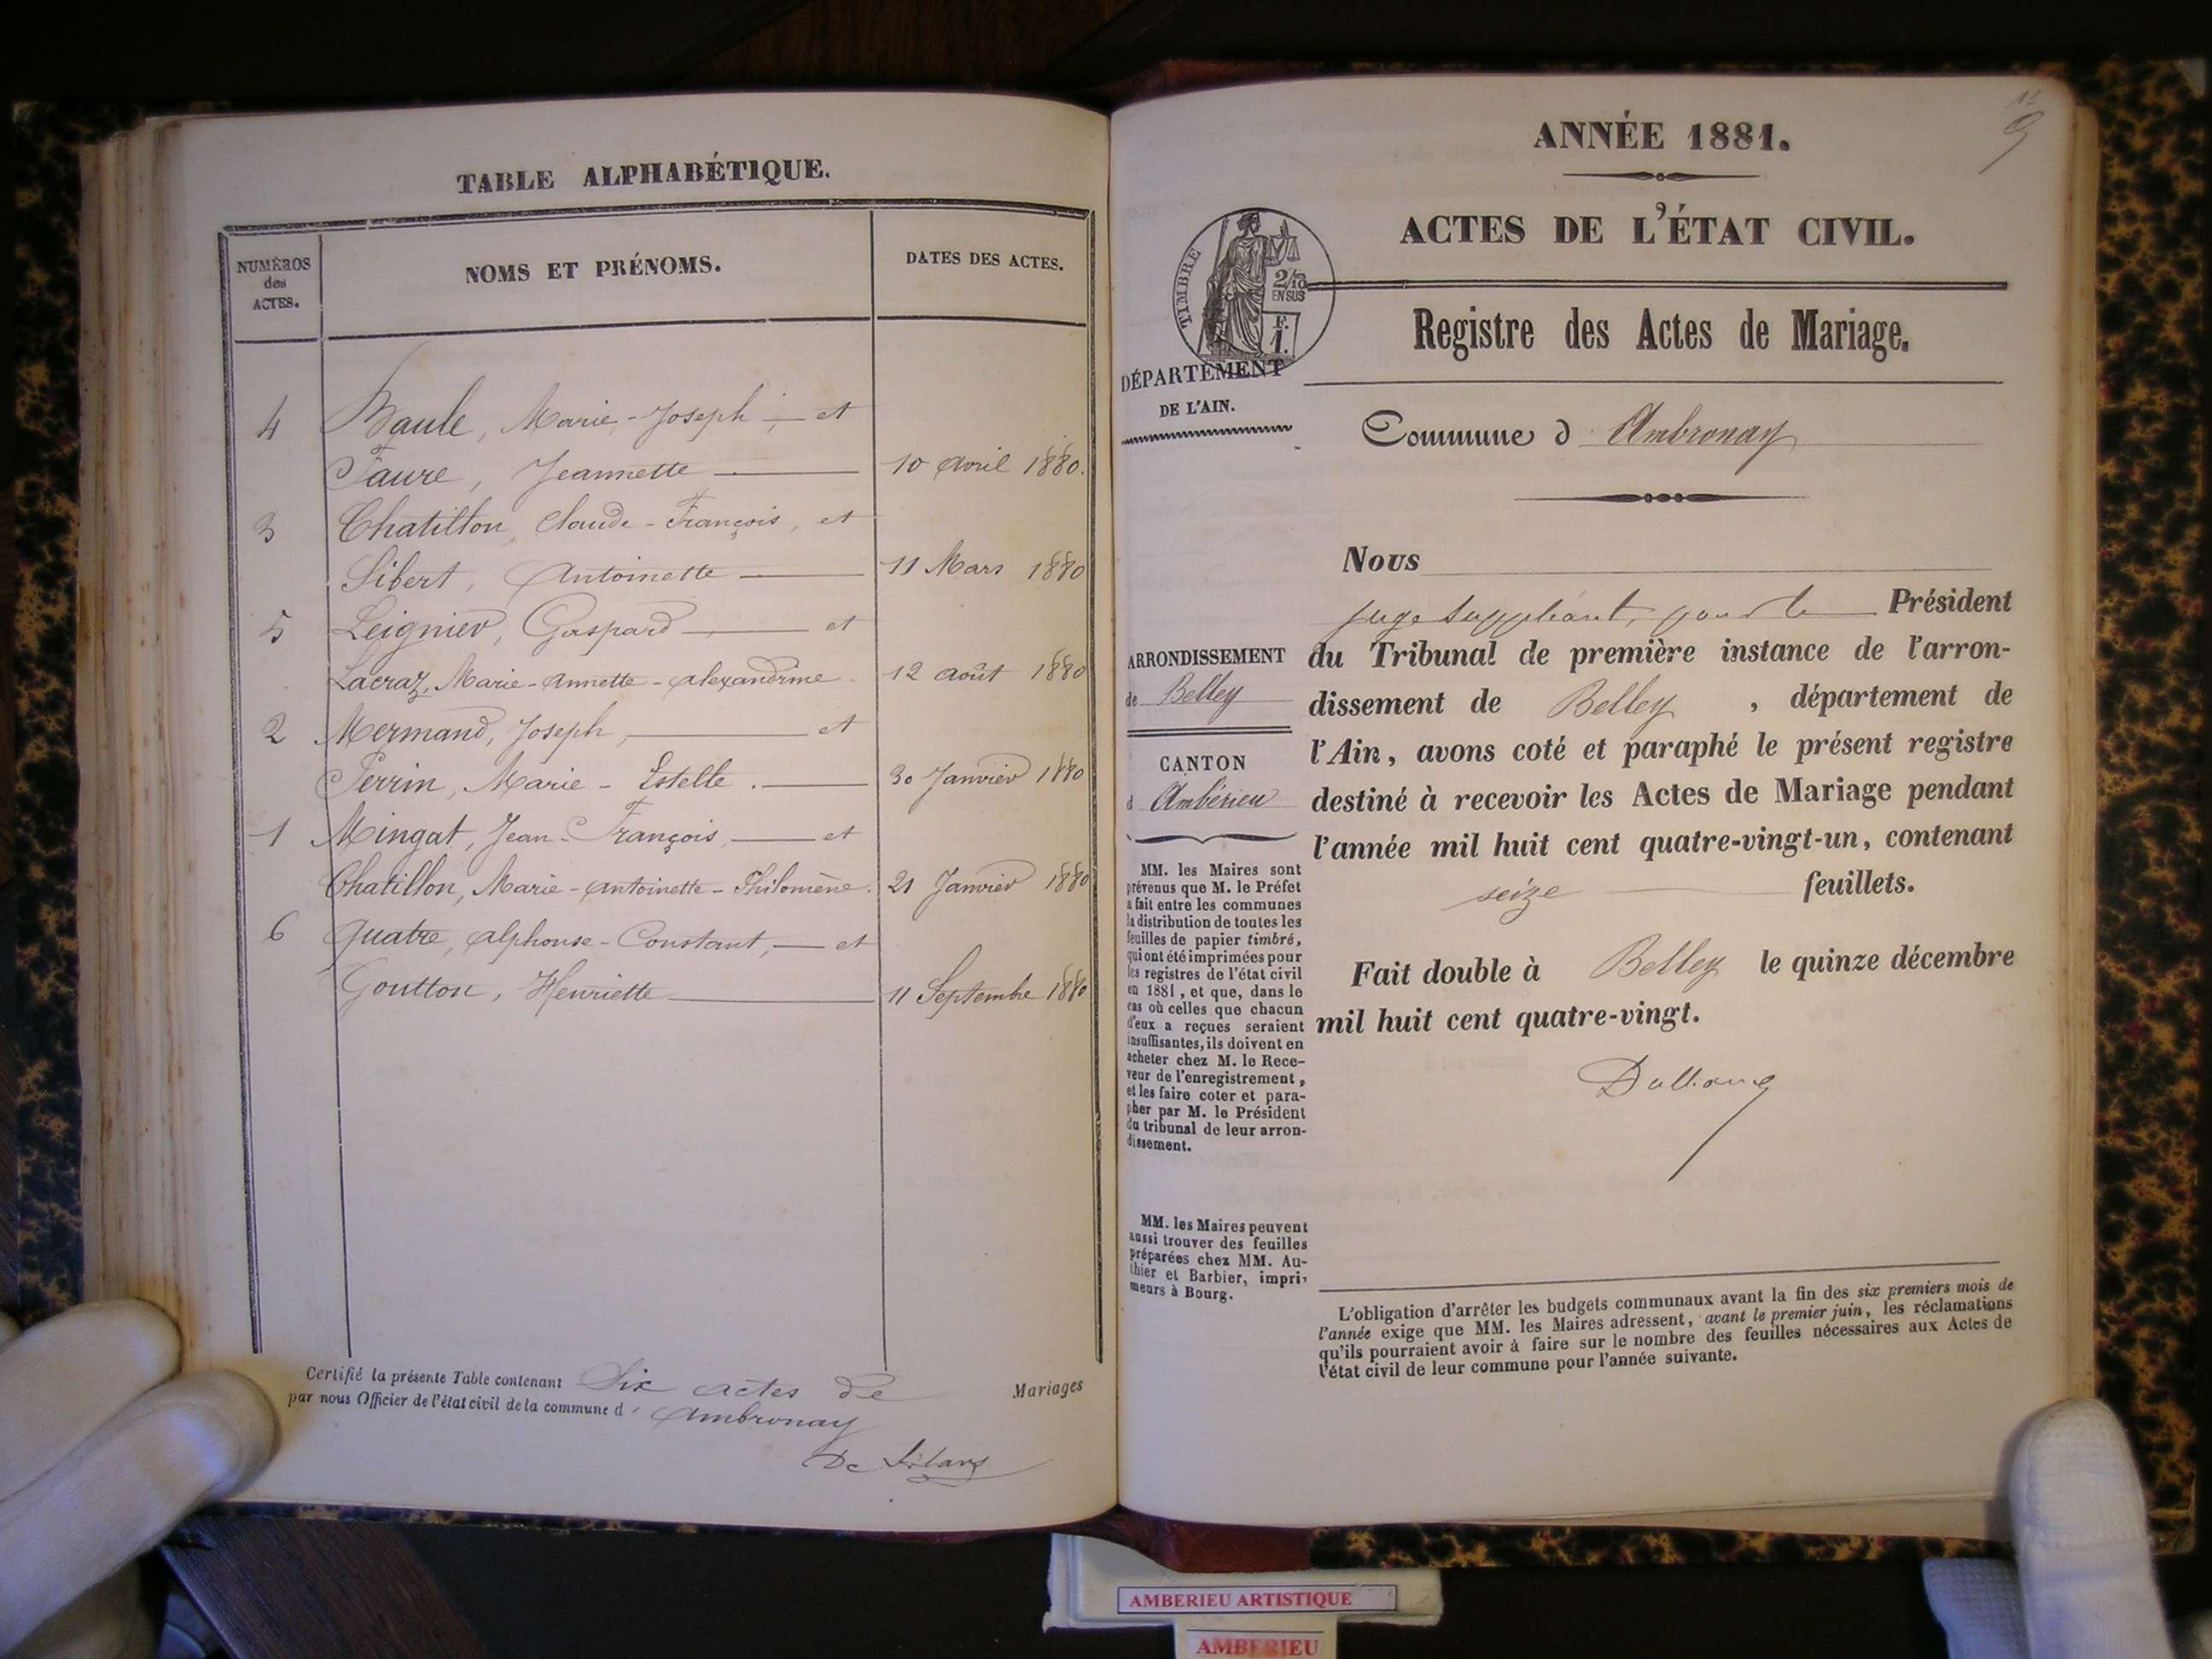 TABLE ALPHABÉTIQUE.
NUMÉROS
des
ACTES.
NOMS ET PRÉNOMS.
DATES DES ACTES.
4 Baule, Marie-Joseph; — et
Faure, Jeannette — 10 avril 1880.
3 Chatillon, Claude-François, et
Sibert, Antoinette — 11 Mars 1880
5 Leignier, Gaspard — et
Lacraz, Marie-Annette-Alexandrine 12 août 1880
2 Mermand, Joseph, — et
Perrin, Marie-Estelle. — 30 Janvier 1880
1 Mingat, Jean-François, — et
Chatillon, Marie-Antoinette-Philomène. 21 Janvier 1880
6 Quatre, Alphonse-Constant, — et
Goutton, Henriette — 11 Septembre 1880
Certifié la présente Table contenant Six actes de Mariages
par nous Officier de l'état civil de la commune d' Ambronay
De
ANNÉE 1881.
ACTES DE L'ÉTAT CIVIL.
TIMBRE
2/10
EN SUS
F.
1.
Registre des Actes de Mariage.
DÉPARTEMENT
DE L'AIN.
Commune d Ambronay
Nous
juge suppléant, pour le Président
du Tribunal de première instance de l'arron-
dissement de Belley, département de
l'Ain, avons coté et paraphé le présent registre
destiné à recevoir les Actes de Mariage pendant
l'année mil huit cent quatre-vingt-un, contenant
seize feuillets.
Fait double à Belley le quinze décembre
mil huit cent quatre-vingt.
ARRONDISSEMENT
de Belley
CANTON
d Ambérieu
MM. les Maires sont
prévenus que M. le Préfet
a fait entre les communes
la distribution de toutes les
feuilles de papier timbré,
qui ont été imprimées pour
les registres de l'état civil
en 1881, et que, dans le
cas où celles que chacun
d'eux a reçues seraient
insuffisantes, ils doivent en
acheter chez M. le Rece-
veur de l'enregistrement,
et les faire coter et para-
pher par M. le Président
du tribunal de leur arron-
dissement.
MM. les Maires peuvent
aussi trouver des feuilles
préparées chez MM. Au-
thier et Barbier, impri-
meurs à Bourg.
L'obligation d'arrêter les budgets communaux avant la fin des six premiers mois de
l'année exige que MM. les Maires adressent, avant le premier juin, les réclamations
qu'ils pourraient avoir à faire sur le nombre des feuilles nécessaires aux Actes de
l'état civil de leur commune pour l'année suivante.
AMBERIEU ARTISTIQUE
AMBERIEU